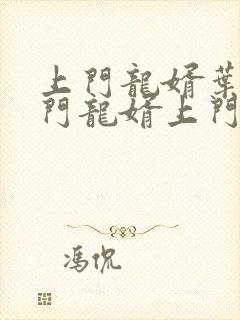 上門龍婿葉
門龍婿上門
馮侃